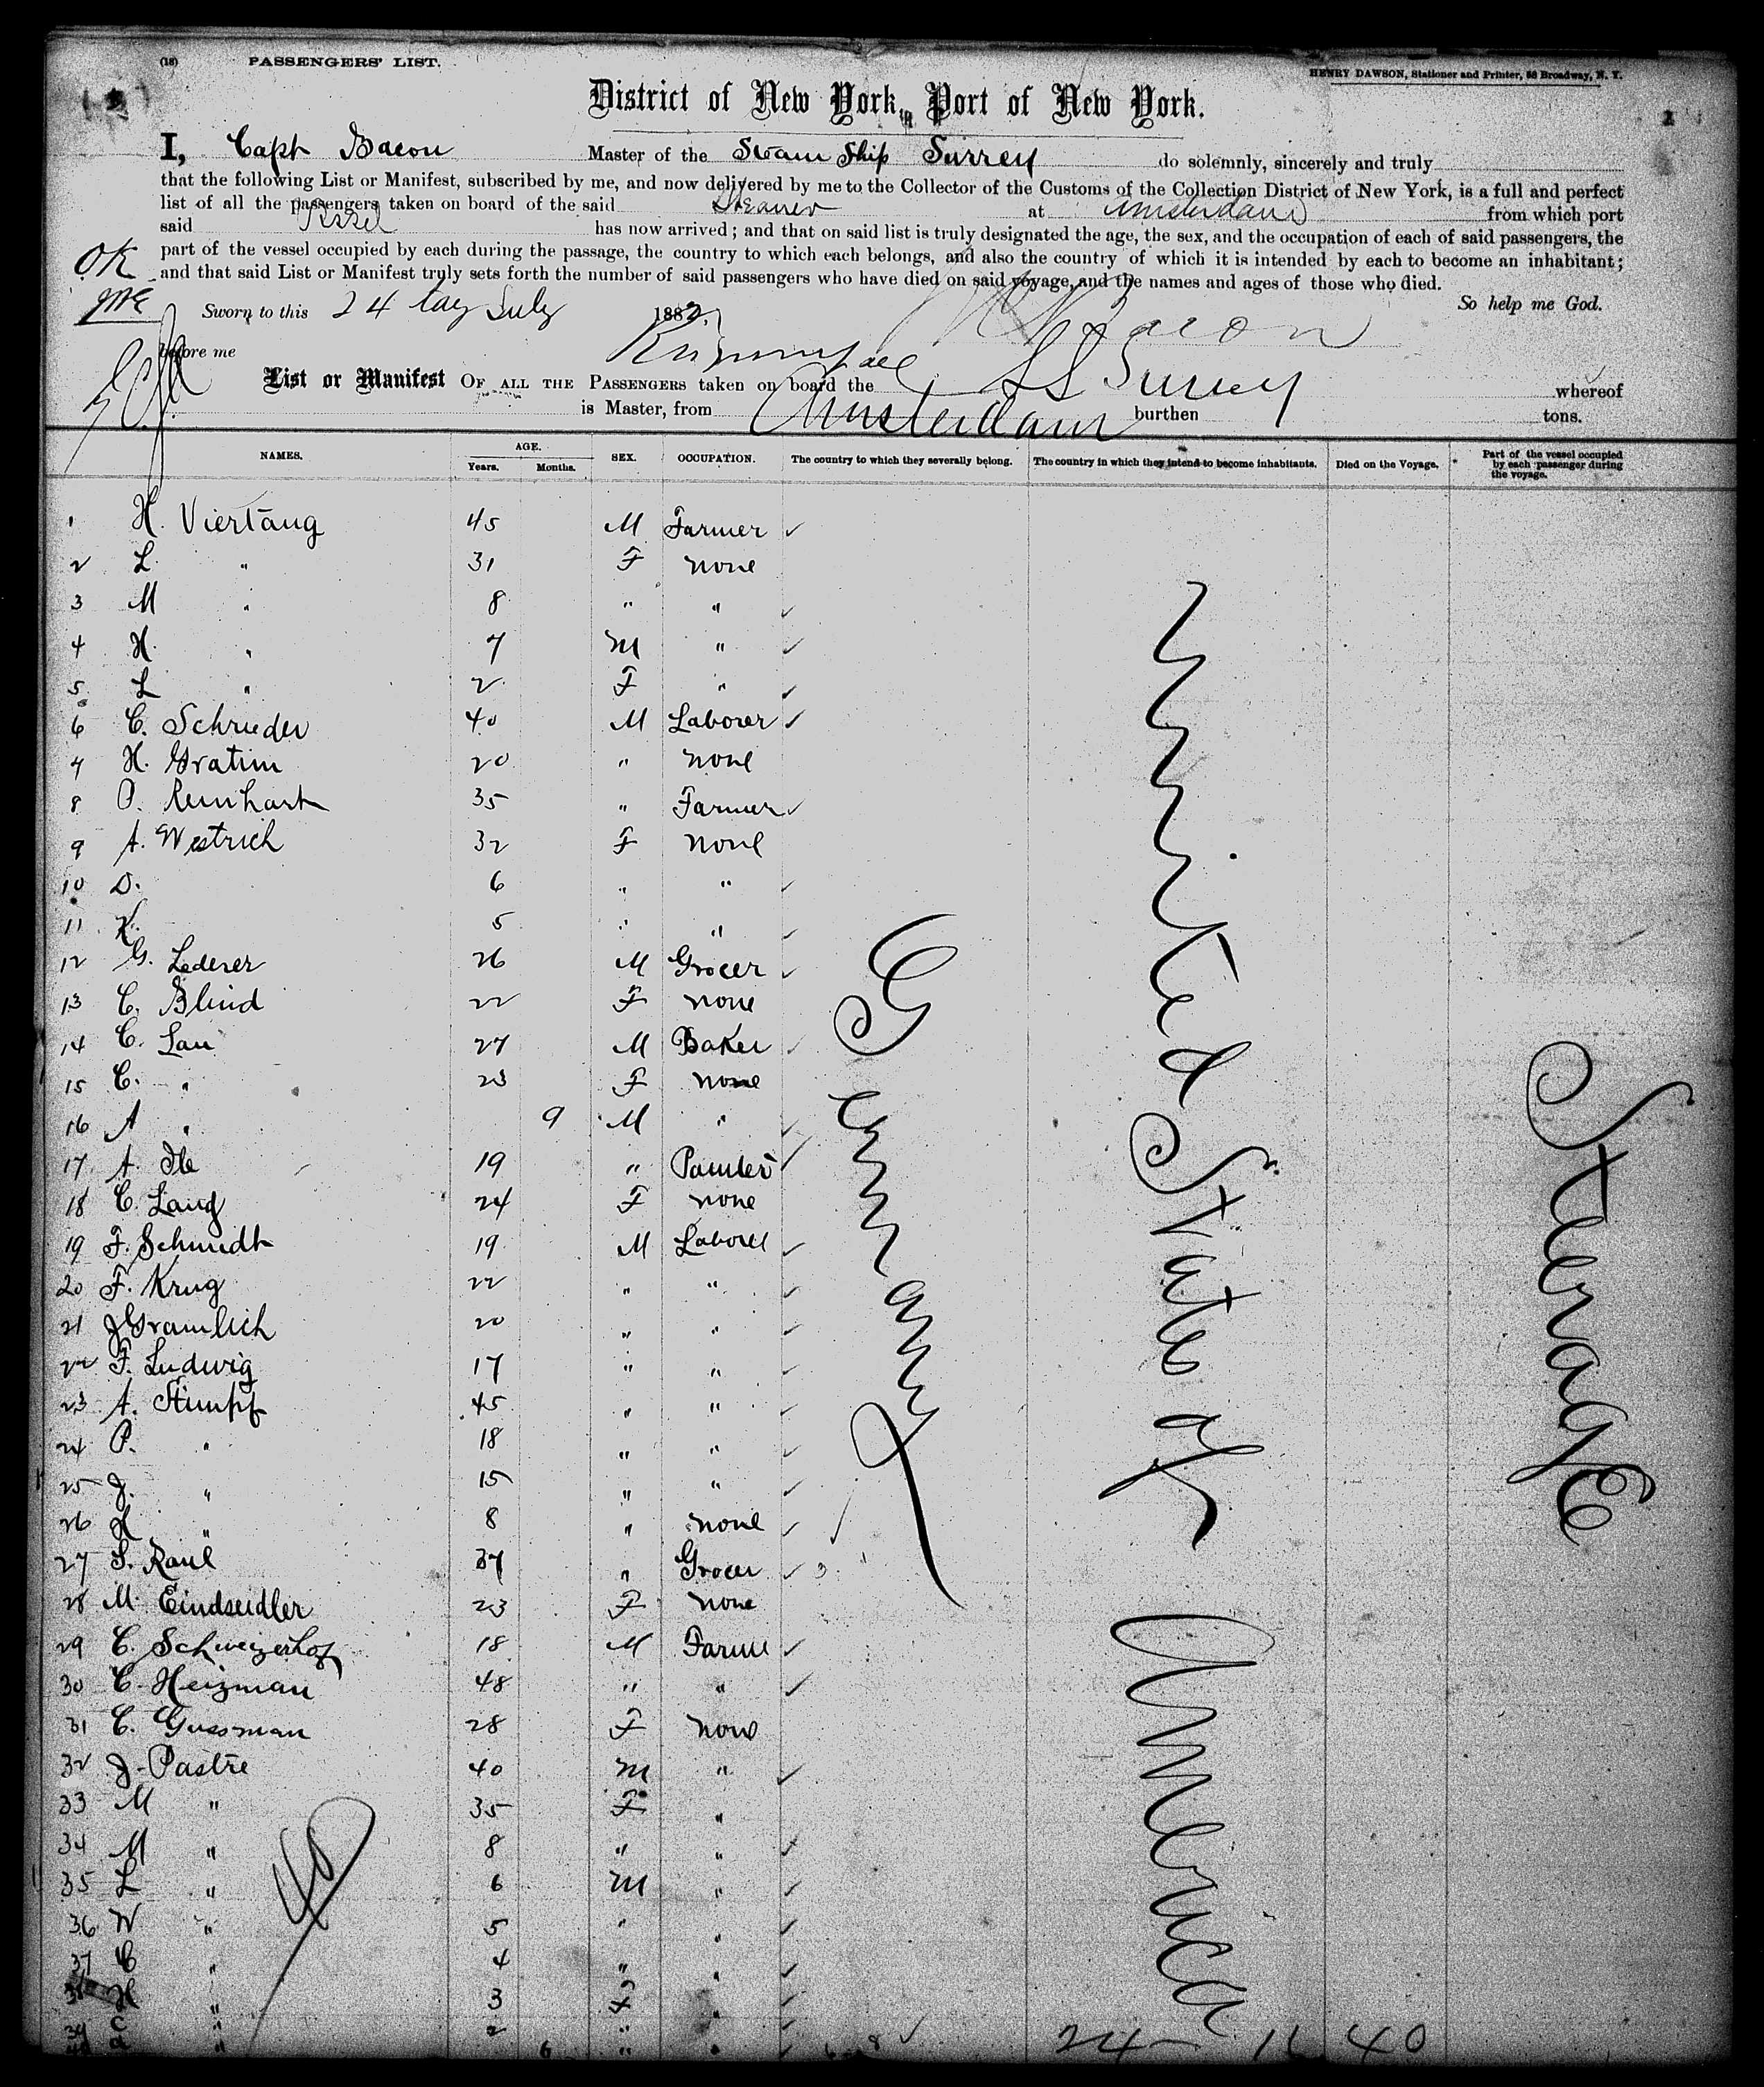 (18) PASSENGERS' LIST.
HENRY DAWSON, Stationer and Printer, 58 Broadway, N. Y.
District of New York, Port of New York.
I, Capt Bacon Master of the Steam Ship Surrey do solemnly, sincerely and truly
that the following List or Manifest, subscribed by me, and now delivered by me to the Collector of the Customs of the Collection District of New York, is a full and perfect
list of all the passengers taken on board of the said Steamer at Amsterdam from which port
said Vessel has now arrived; and that on said list is truly designated the age, the sex, and the occupation of each of said passengers, the
part of the vessel occupied by each during the passage, the country to which each belongs, and also the country of which it is intended by each to become an inhabitant;
and that said List or Manifest truly sets forth the number of said passengers who have died on said voyage, and the names and ages of those who died.
OK
So help me God.
Sworn to this 24 day July 1882 Bacon
before me
List or Manifest OF ALL THE PASSENGERS taken on board the SS Surrey whereof
is Master, from Amsterdam burthen tons.
NAMES. AGE. Years. Months. SEX. OCCUPATION. The country to which they severally belong. The country in which they intend to become inhabitants. Died on the Voyage. Part of the vessel occupied by each passenger during the voyage.
1 H. Viertang 45 M Farmer
2 L. " 31 F none
3 M " 8 " "
4 H. " 7 M "
5 L " 2 F "
6 C. Schrieder 40 M Laborer
7 H. Gratim 20 " none
8 P. Reinhart 35 " Farmer
9 A. Westrich 32 F none
10 D. 6 " "
11 K. 5 " "
12 G. Lederer 26 M Grocer
13 C. Blind 22 F none
14 C. Lau 27 M Baker
15 C. " 23 F none
16 A " 9 M "
17 A. Ile 19 " Painter
18 C. Lang 24 F none
19 F. Schmidt 19 M Laborer
20 F. Krug 22 " "
21 J Gramlich 20 " "
22 F. Ludwig 17 " "
23 A. Stimpf 45 " "
24 P. " 18 " "
25 J. " 15 " "
26 H " 8 " none
27 S. Raul 37 " Grocer
28 M. Eindseidler 23 F none
29 C. Schweizerhof 18 M Farmer
30 C. Heizman 48 " "
31 C. Gussman 28 F none
32 J. Pastre 40 M "
33 M " 35 F "
34 M " 8 " "
35 L " 6 M "
36 W " 5 " "
37 C " 4 " "
38 H " 3 F "
39 C " 2 " "
" 6 " "
Germany
United States of America
Steerage
40
24 16 40